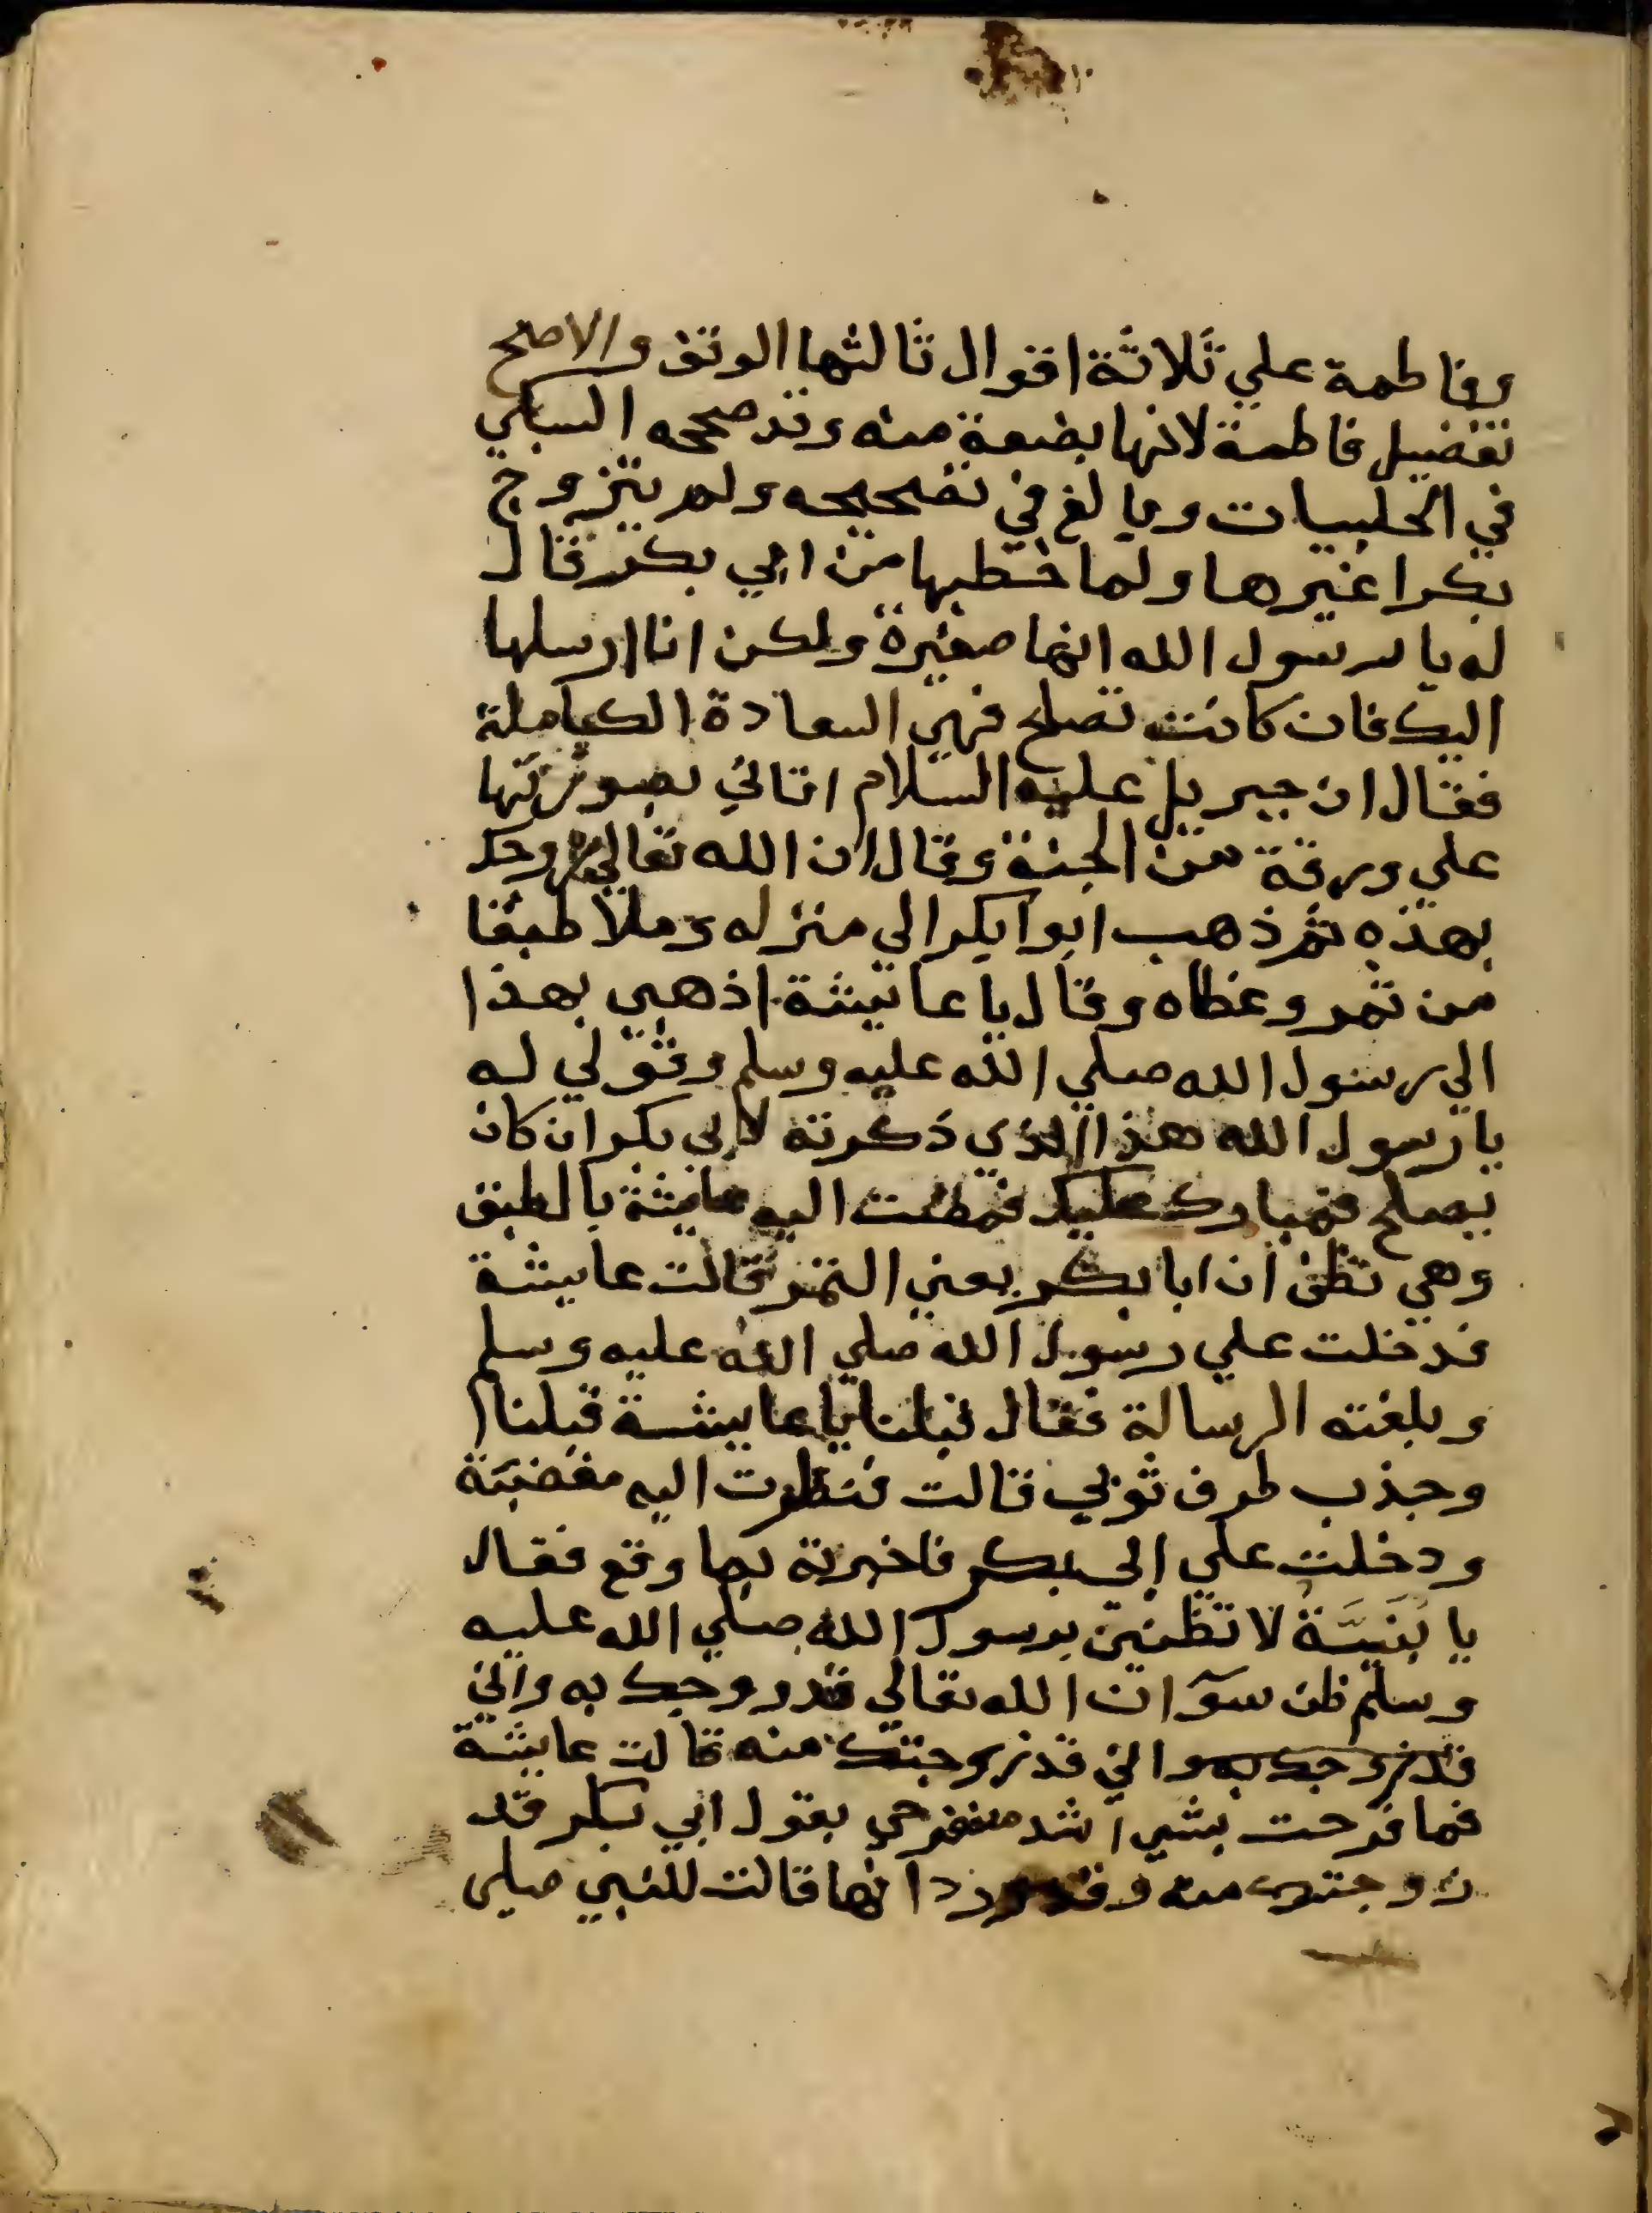 وفاطمة علي ثلاثة اقوال ثالثها الوقف والاصح
تفضيل فاطمة لانها بضعة منه وقد صححه السبكي
في الحلبيات وبالغ في تصحيحه ولم يتزوج
بكرا غيرها ولما خطبها من ابي بكر قال
له يا رسول الله انها صغيرة ولكن انا ارسلها
اليك فان كانت تصلح فهي السعادة الكاملة
فقال ان جبريل عليه السلام اتاني بصورتها
علي ورقة من الجنة وقال ان الله تعالي زوجك
بهذه ثم ذهب ابوا بكر الي منزله وملا طبقا
من تمر وغطاه وقال يا عايشة اذهبي بهذا
الي رسول الله صلي الله عليه وسلم وقولي له
يا رسول الله هذا الذي ذكرته لابي بكر ان كان
يصلح فمبارك عليك فمضت اليه عايشة بالطبق
وهي تظن ان ابا بكر يعني التمر قالت عايشة
فدخلت علي رسول الله صلي الله عليه وسلم
وبلغته الرسالة فقال قبلنا يا عايشة قبلنا
وجذب طرف ثوبي قالت فنظرت اليه مغضبة
ودخلت علي ابي بكر فاخبرته بما وقع فقال
يا بُنَيَّةُ لا تظنين برسول الله صلي الله عليه
وسلم ظن سوٓ ان الله تعالي قد زوجك به واني
قد زوجك به واني قد زوجتك منه قالت عايشة
فما فرحت بشي اشد من فرحي بقول ابي بكر قد
زوجتك منه وقد ورد انها قالت للنبي صلي